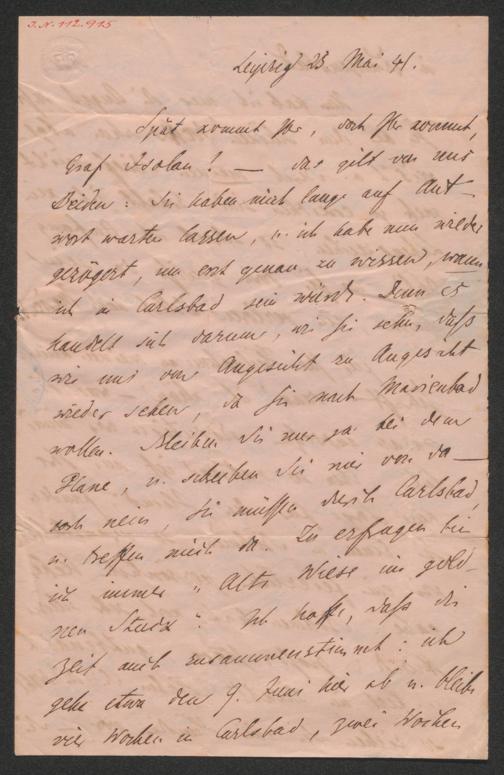 J.N. 112.915
Leipzig 23 Mai 41.
Spät kommt Ihr, doch Ihr kommt,
Graf Isolan! — das gilt von uns
Beiden: Sie haben mich lange auf Ant-
wort warten lassen, u. ich habe nun wieder
gezögert, um erst genau zu wissen, wann
ich in Carlsbad sein würde. Denn es
handelt sich darum, wie Sie sehn, daß
wir uns von Angesicht zu Angesicht
wieder sehen, da Sie nach Marienbad
wollen. Bleiben Sie mir ja bei dem
Plane, u. schreiben Sie mir von da —
doch nein, Sie müssen durch Carlsbad,
u. treffen mich da. Zu erfragen bin
ich immer „Alte Wiese im gold-
nen Stuck". Ich hoffe, daß die
Zeit auch zusammenstimmt: ich
gehe etwa den 9. Juni hier ab u. bleibe
vier Wochen in Carlsbad, zwei Wochen